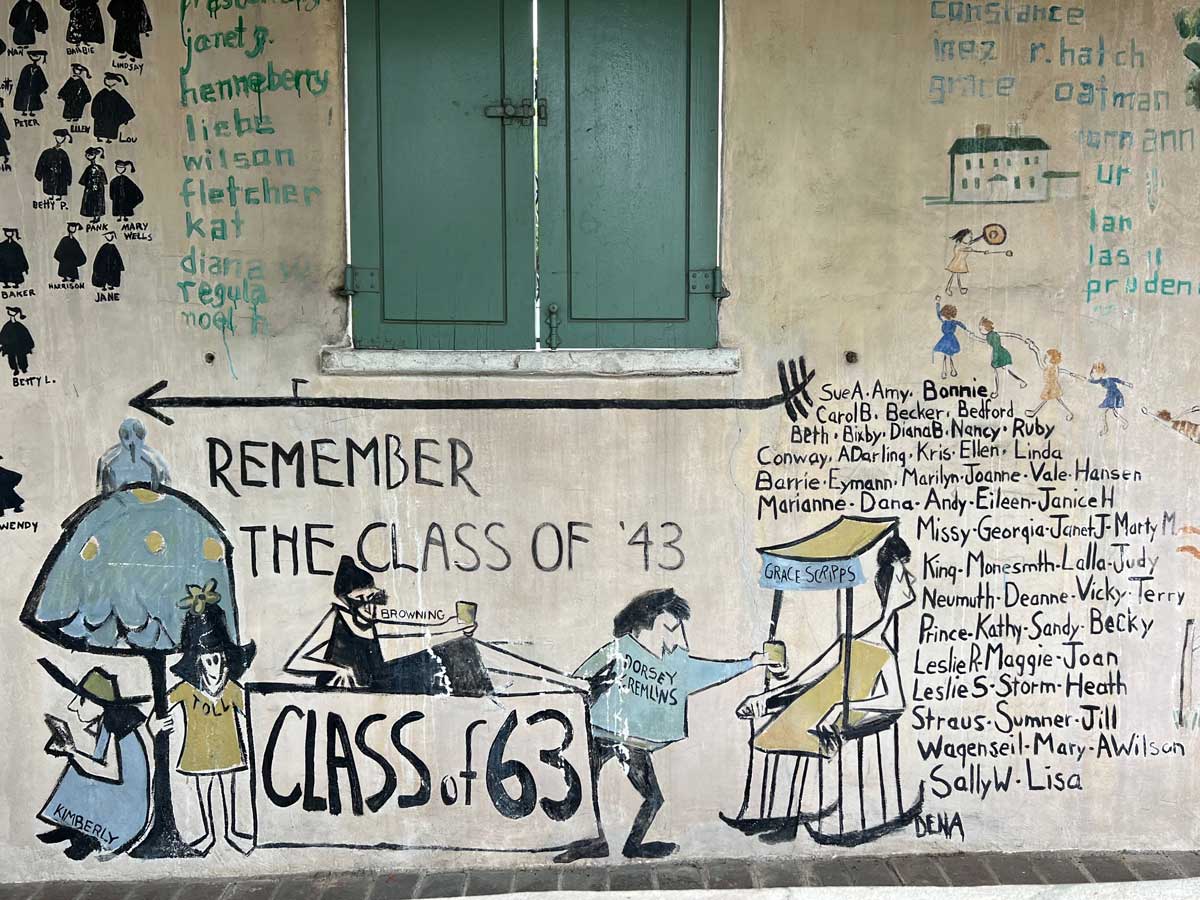 NAN
BARBIE
LINDSAY
PETER
ELLEN
LOU
BETTY P.
PANK
MARY
WELLS
BAKER
HARRISON
JANE
BETTY L.
WENDY
janet g.
henneberry
liebe
wilson
fletcher
kat
diana w
regula
noel h
constance
inez r. hatch
grace oatman
ann
ur
lan
las
pruden
REMEMBER
THE CLASS OF '43
SueA. Amy. Bonnie
CarolB. Becker. Bedford
Beth. Bixby. DianaB. Nancy. Ruby
Conway, ADarling. Kris. Ellen. Linda
Barrie. Eymann. Marilyn. Joanne. Vale. Hansen
Marianne. Dana. Andy. Eileen. JaniceH
Missy-Georgia-JanetJ-Marty M.
King-Monesmith-Lalla-Judy
Neumuth-Deanne-Vicky-Terry
Prince-Kathy-Sandy-Becky
LeslieR-Maggie-Joan
LeslieS-Storm-Heath
Straus-Sumner-Jill
Wagenseil-Mary-AWilson
SallyW-Lisa
DENA
GRACE SCRIPPS
BROWNING
DORSEY
GREMLINS
TOLL
KIMBERLY
CLASS of 63